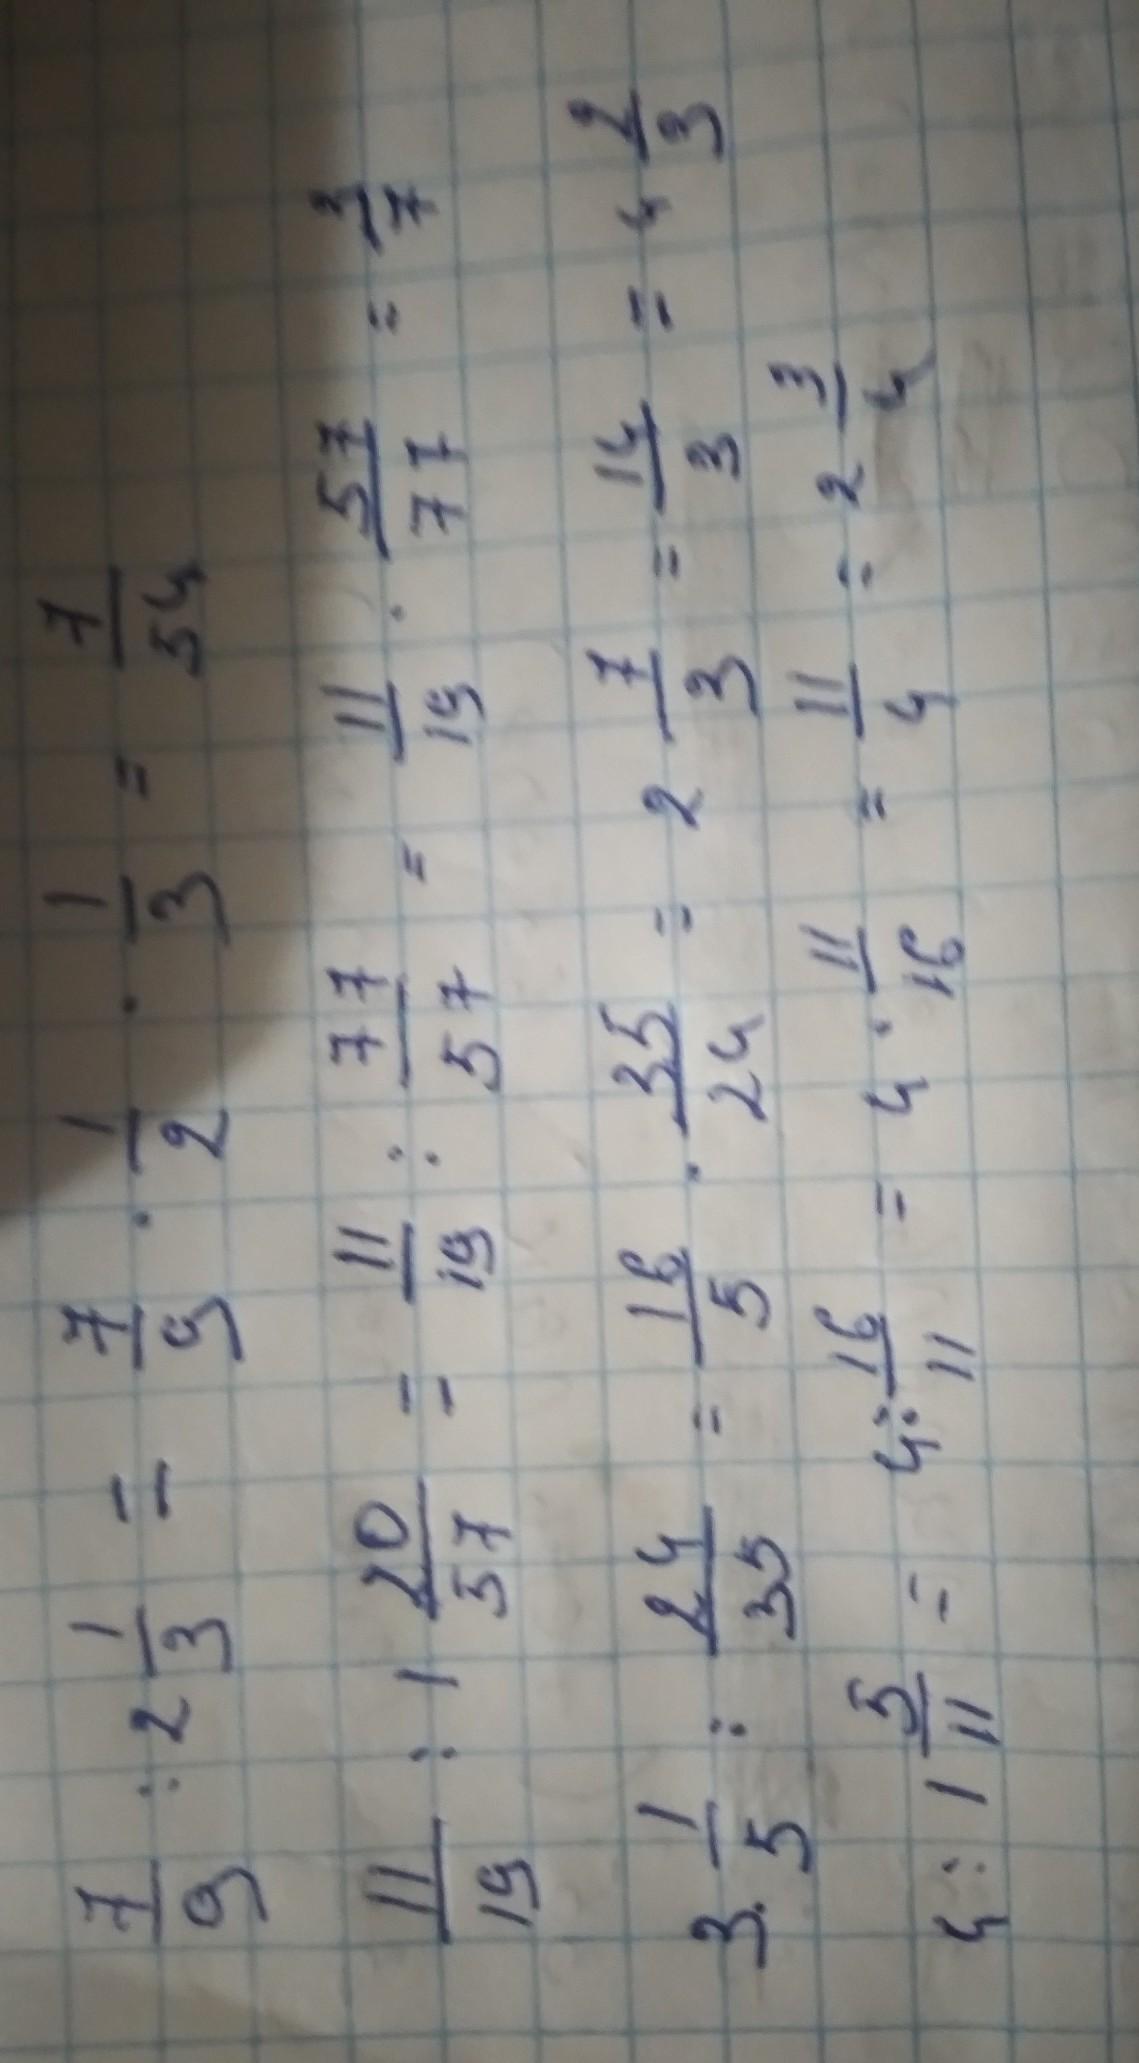 7/9 : 2 1/3 = 7/9 · 1/2 · 1/3 = 7/54
11/19 : 1 20/57 = 11/19 : 77/57 = 11/19 · 57/77 = 3/7
3. 1/5 : 24/35 = 16/5 · 35/24 = 2 7/3 = 14/3 = 4 2/3
4 : 1 5/11 = 4 : 16/11 = 4 · 11/16 = 11/4 = 2 3/4